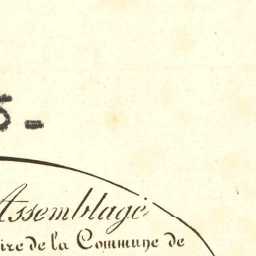 5 -
Assemblage
ire de la Commune de